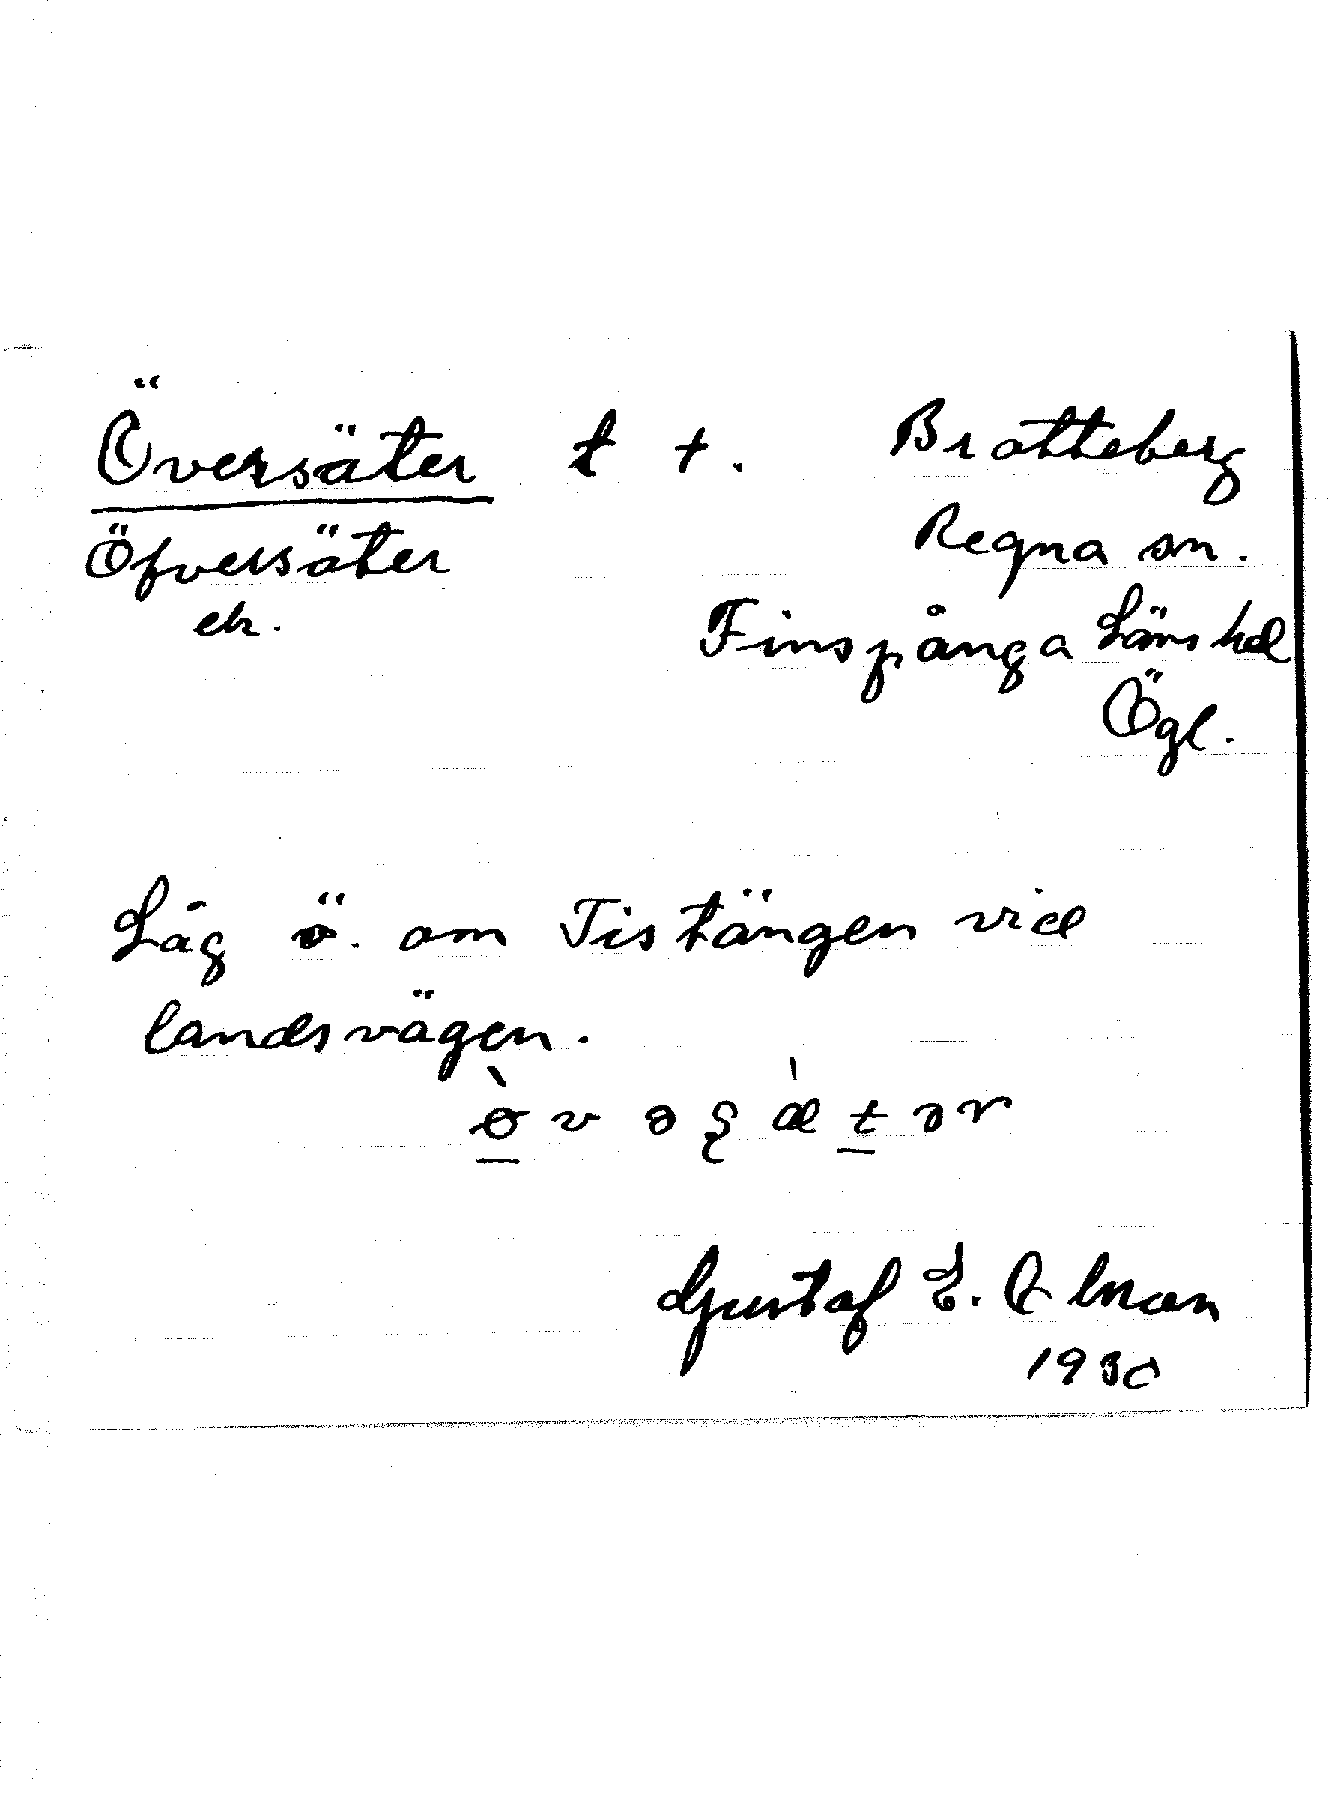 Översäter t †. Bratteberg
Öfversäter Regna sn.
ek. Finspånga Läns hd
Ögl.
Låg ö. om Tistängen vid
landsvägen.
Gustaf E. Alman
1930